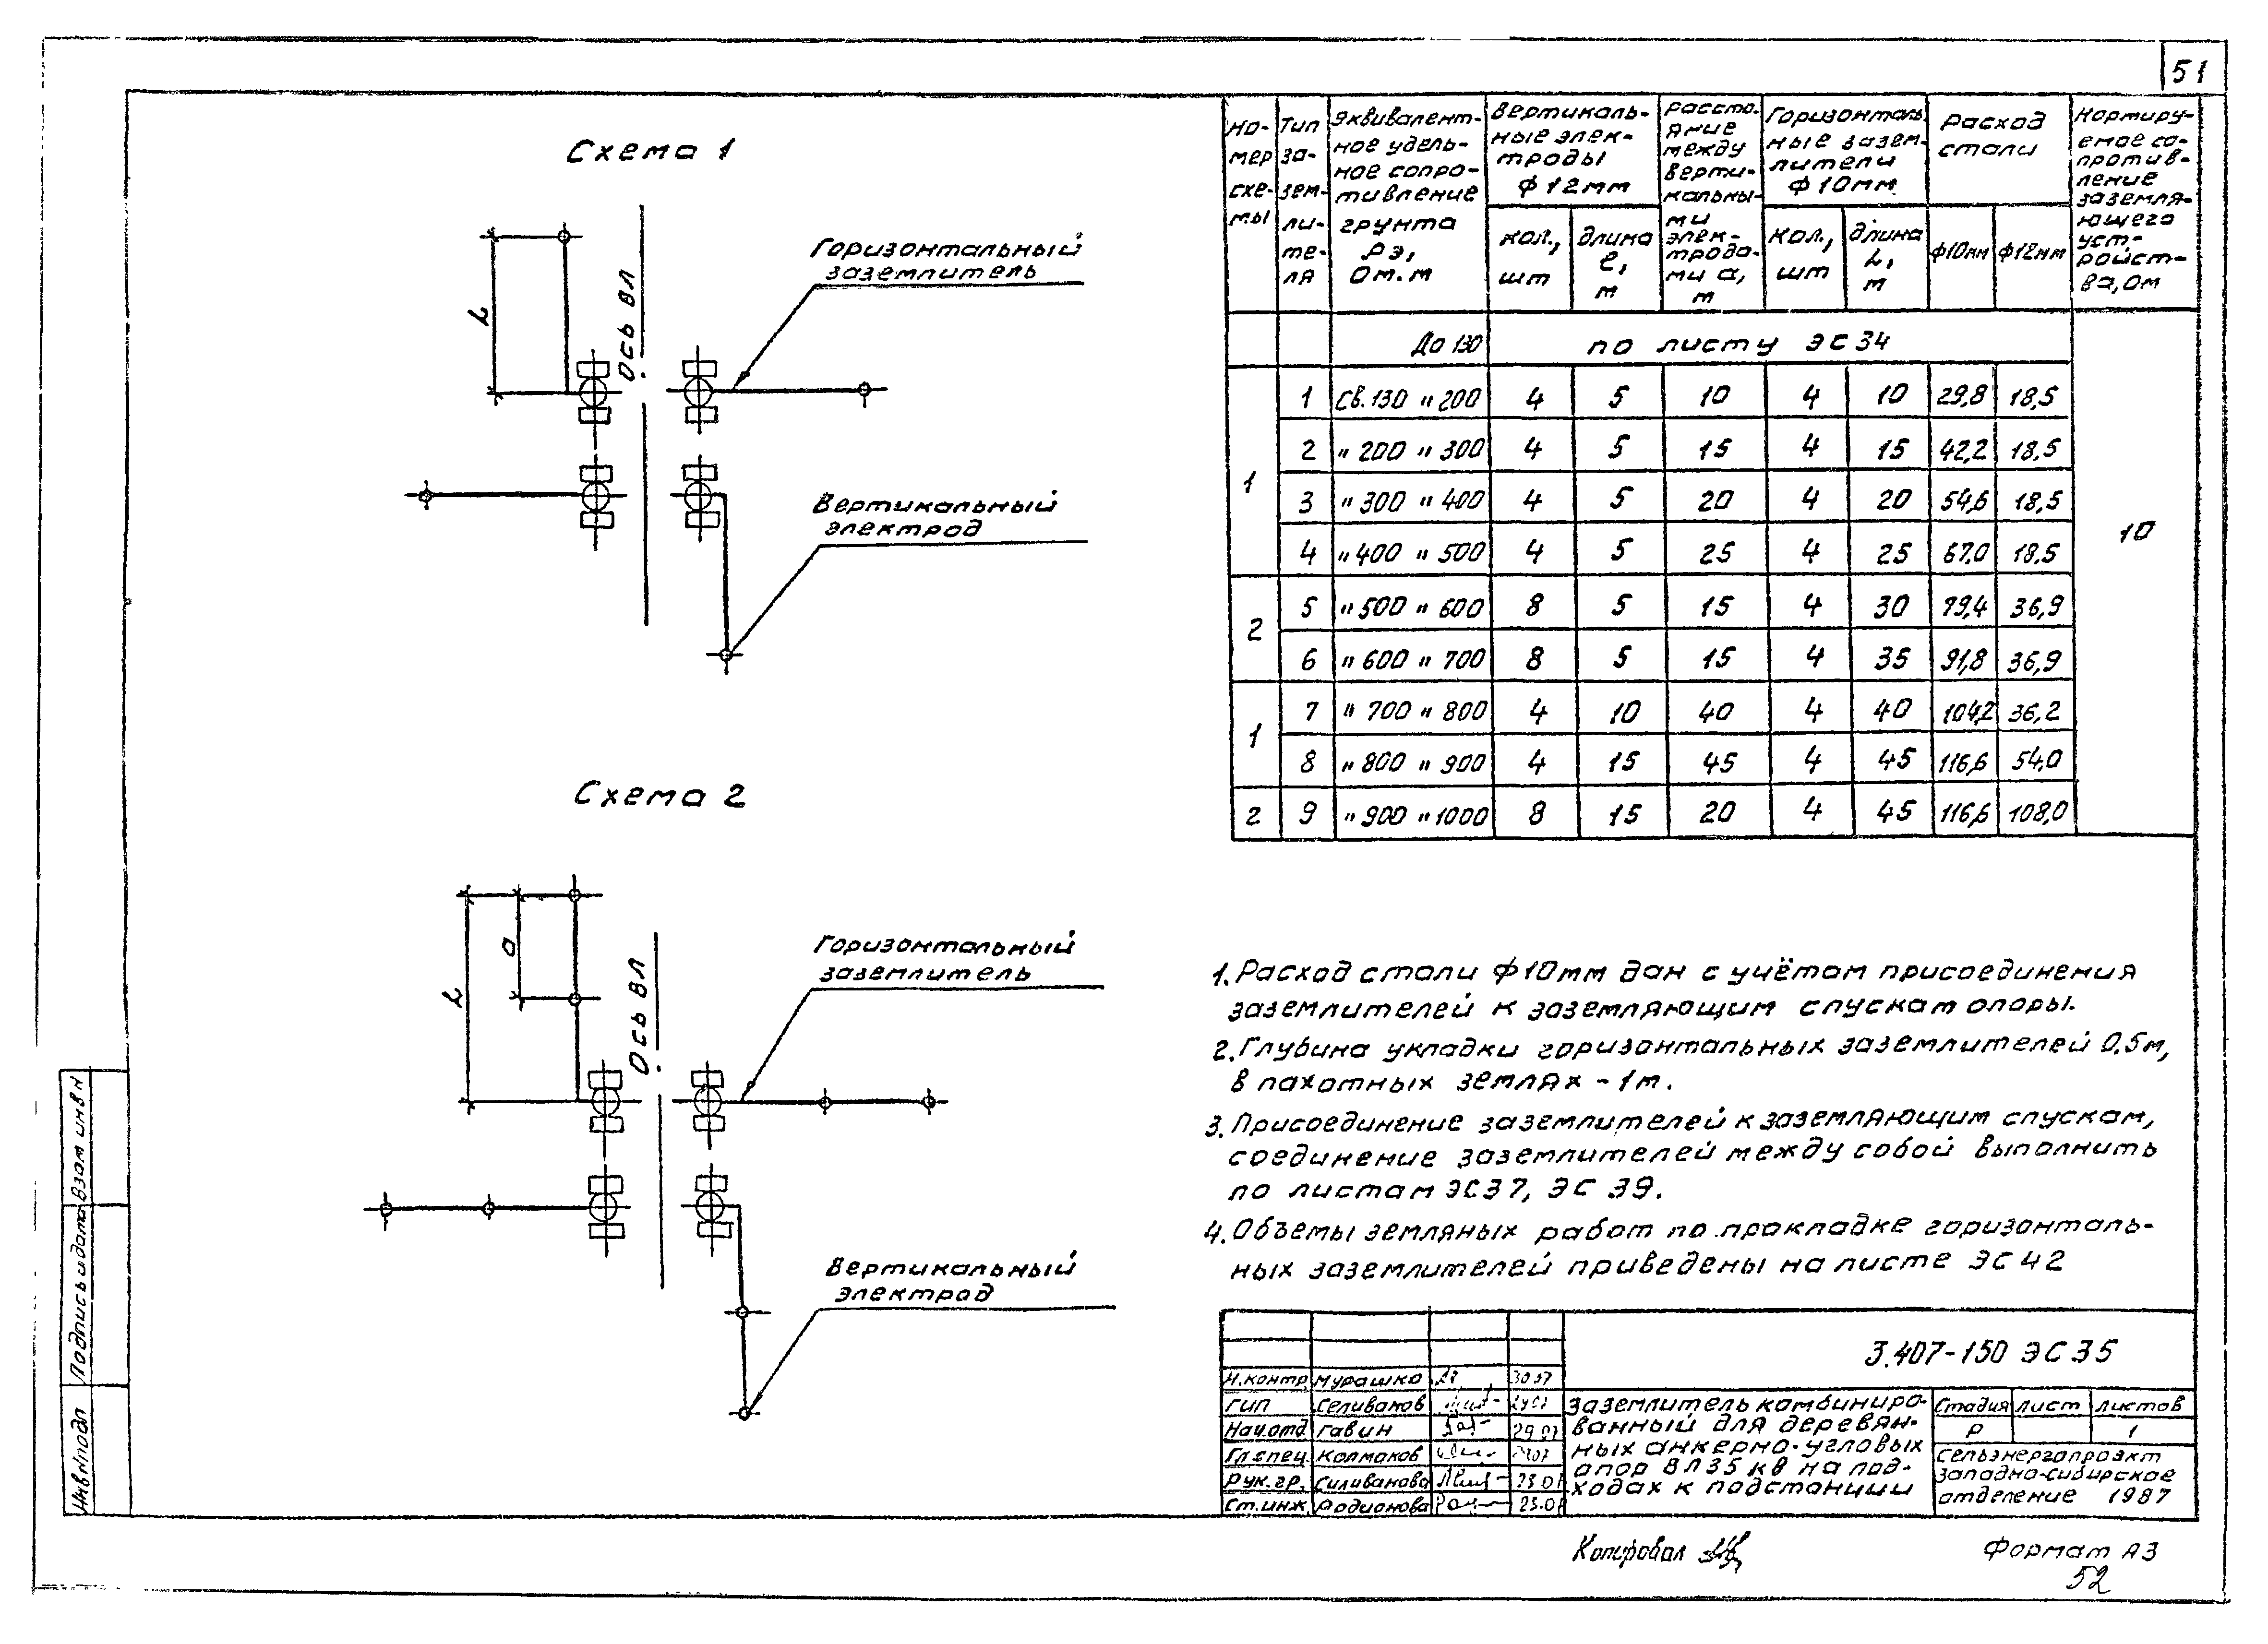 51
Схема 1
L
Ось ВЛ
Горизонтальный
заземлитель
Вертикальный
электрод
Схема 2
L
а
Ось ВЛ
Горизонтальный
заземлитель
Вертикальный
электрод
Но-
мер
схе-
мы
Тип
за-
зем-
ли-
те-
ля
Эквивалент-
ное удель-
ное сопро-
тивление
грунта
ρэ,
Ом.м
Вертикаль-
ные элек-
троды
ф12мм
кол.,
шт
длина
ℓ,
м
Рассто-
яние
между
верти-
кальны-
ми
элек-
трода-
ми а,
м
Горизонталь-
ные зазем-
лители
ф10мм
кол.,
шт
длина
L,
м
Расход
стали
ф10мм ф12мм
Нормиру-
емое со-
против-
ление
заземля-
ющего
уст-
ройст-
ва, Ом
До 130 по листу ЭС 34
1 1 Св. 130 " 200 4 5 10 4 10 29,8 18,5
2 " 200 " 300 4 5 15 4 15 42,2 18,5
3 " 300 " 400 4 5 20 4 20 54,6 18,5
4 " 400 " 500 4 5 25 4 25 67,0 18,5
10
2 5 " 500 " 600 8 5 15 4 30 79,4 36,9
6 " 600 " 700 8 5 15 4 35 91,8 36,9
1 7 " 700 " 800 4 10 40 4 40 104,2 36,2
8 " 800 " 900 4 15 45 4 45 116,6 54,0
2 9 " 900 " 1000 8 15 20 4 45 116,6 108,0
1. Расход стали ф10мм дан с учётом присоединения
заземлителей к заземляющим спускам опоры.
2. Глубина укладки горизонтальных заземлителей 0.5м,
в пахотных землях - 1м.
3. Присоединение заземлителей к заземляющим спускам,
соединение заземлителей между собой выполнить
по листам ЭС37, ЭС 39.
4. Объемы земляных работ по прокладке горизонталь-
ных заземлителей приведены на листе ЭС 42
3.407-150 ЭС 35
Н.контр Мурашко
ГИП Селиванов
Нач.отд Гавин
Гл.спец Колмаков
Рук.гр. Силиванова
Ст.инж Родионова
Заземлитель комбиниро-
ванный для деревян-
ных анкерно-угловых
опор ВЛ35 кв на под-
ходах к подстанции
Стадия Лист Листов
Р 1
Сельэнергопроект
Западно-Сибирское
отделение 1987
Взам инв н
Подпись и дата
Инв н подл
Копировал
Формат А3
52